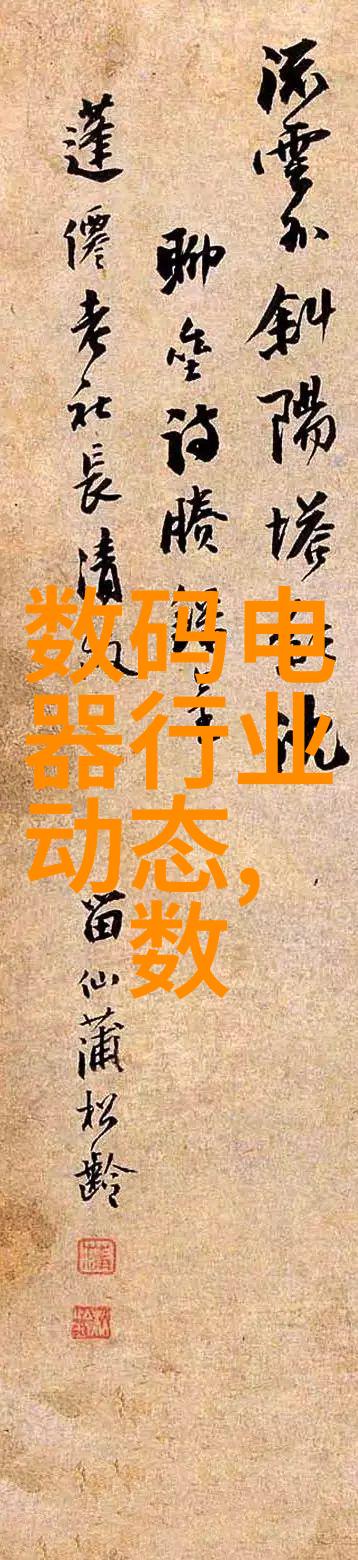 流雲外斜陽塔
聊 詩賸
蓬僊老社長清
留仙蒲松齡
数码电
器行业
动态,
数